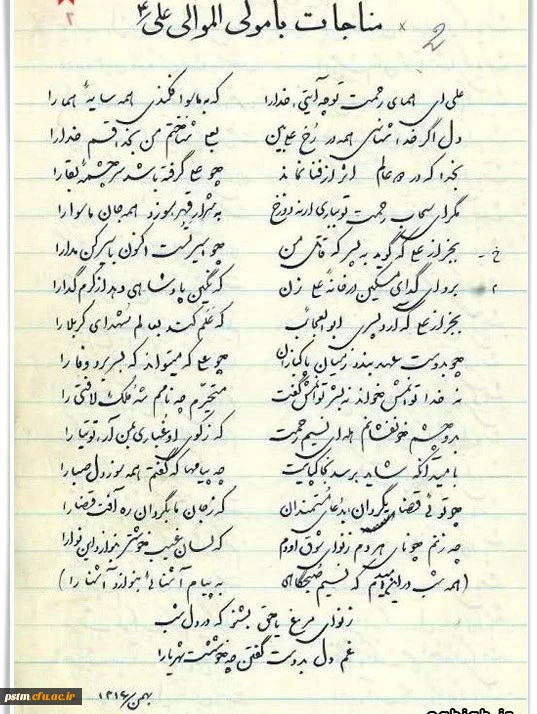 مناجات با مولی الموالی علی ع
2
۲
علی ای همای رحمت تو چه آیتی خدا را که به ماسوا فکندی همه سایهٔ هما را
دل اگر خداشناسی همه در رخ علی بین بعلی شناختم من بخدا قسم خدا را
بخدا که در دو عالم اثر از فنا نماند چو علی گرفته باشد سر چشمهٔ بقا را
مگر ای سحاب رحمت تو بباری ارنه دوزخ به شرار قهر سوزد همه جان ماسوا را
بجز از علی که گوید به پسر که قاتل من چو اسیر تست اکنون باسیر کن مدارا
برو ای گدای مسکین در خانهٔ علی زن که نگین پادشاهی دهد از کرم گدا را
بجز از علی که آرد پسری ابوالعجائب که علم کند بعالم شهدای کربلا را
چو بدوست عهد بندد ز میان پاکبازان چو علی که میتواند که بسر برد وفا را
نه خدا توانمش خواند نه بشر توانمش گفت متحیرم چه نامم شه ملک لافتی را
بدو چشم خونفشانم هله ای نسیم رحمت که ز کوی او غباری بمن آر توتیا را
بامید آنکه شاید برسد بخاک پایت چه پیامها که گفتم همه سوز دل صبا را
چو توئی قضا بگردان بدعای مستمندان که ز جان ما بگردان ره آفت قضا را
چه زنم چو نای هر دم ز نوای شوق او دم که لسان غیب خوشتر بنوازد این نوا را
(همه شب در این امیدم که نسیم صبحگاهی به پیام آشنائی بنوازد آشنا را)
ز نوای مرغ یا حق بشنو که در دل شب
غم دل بدوست گفتن چه خوشست شهریارا
pstm.cfu.ac.ir